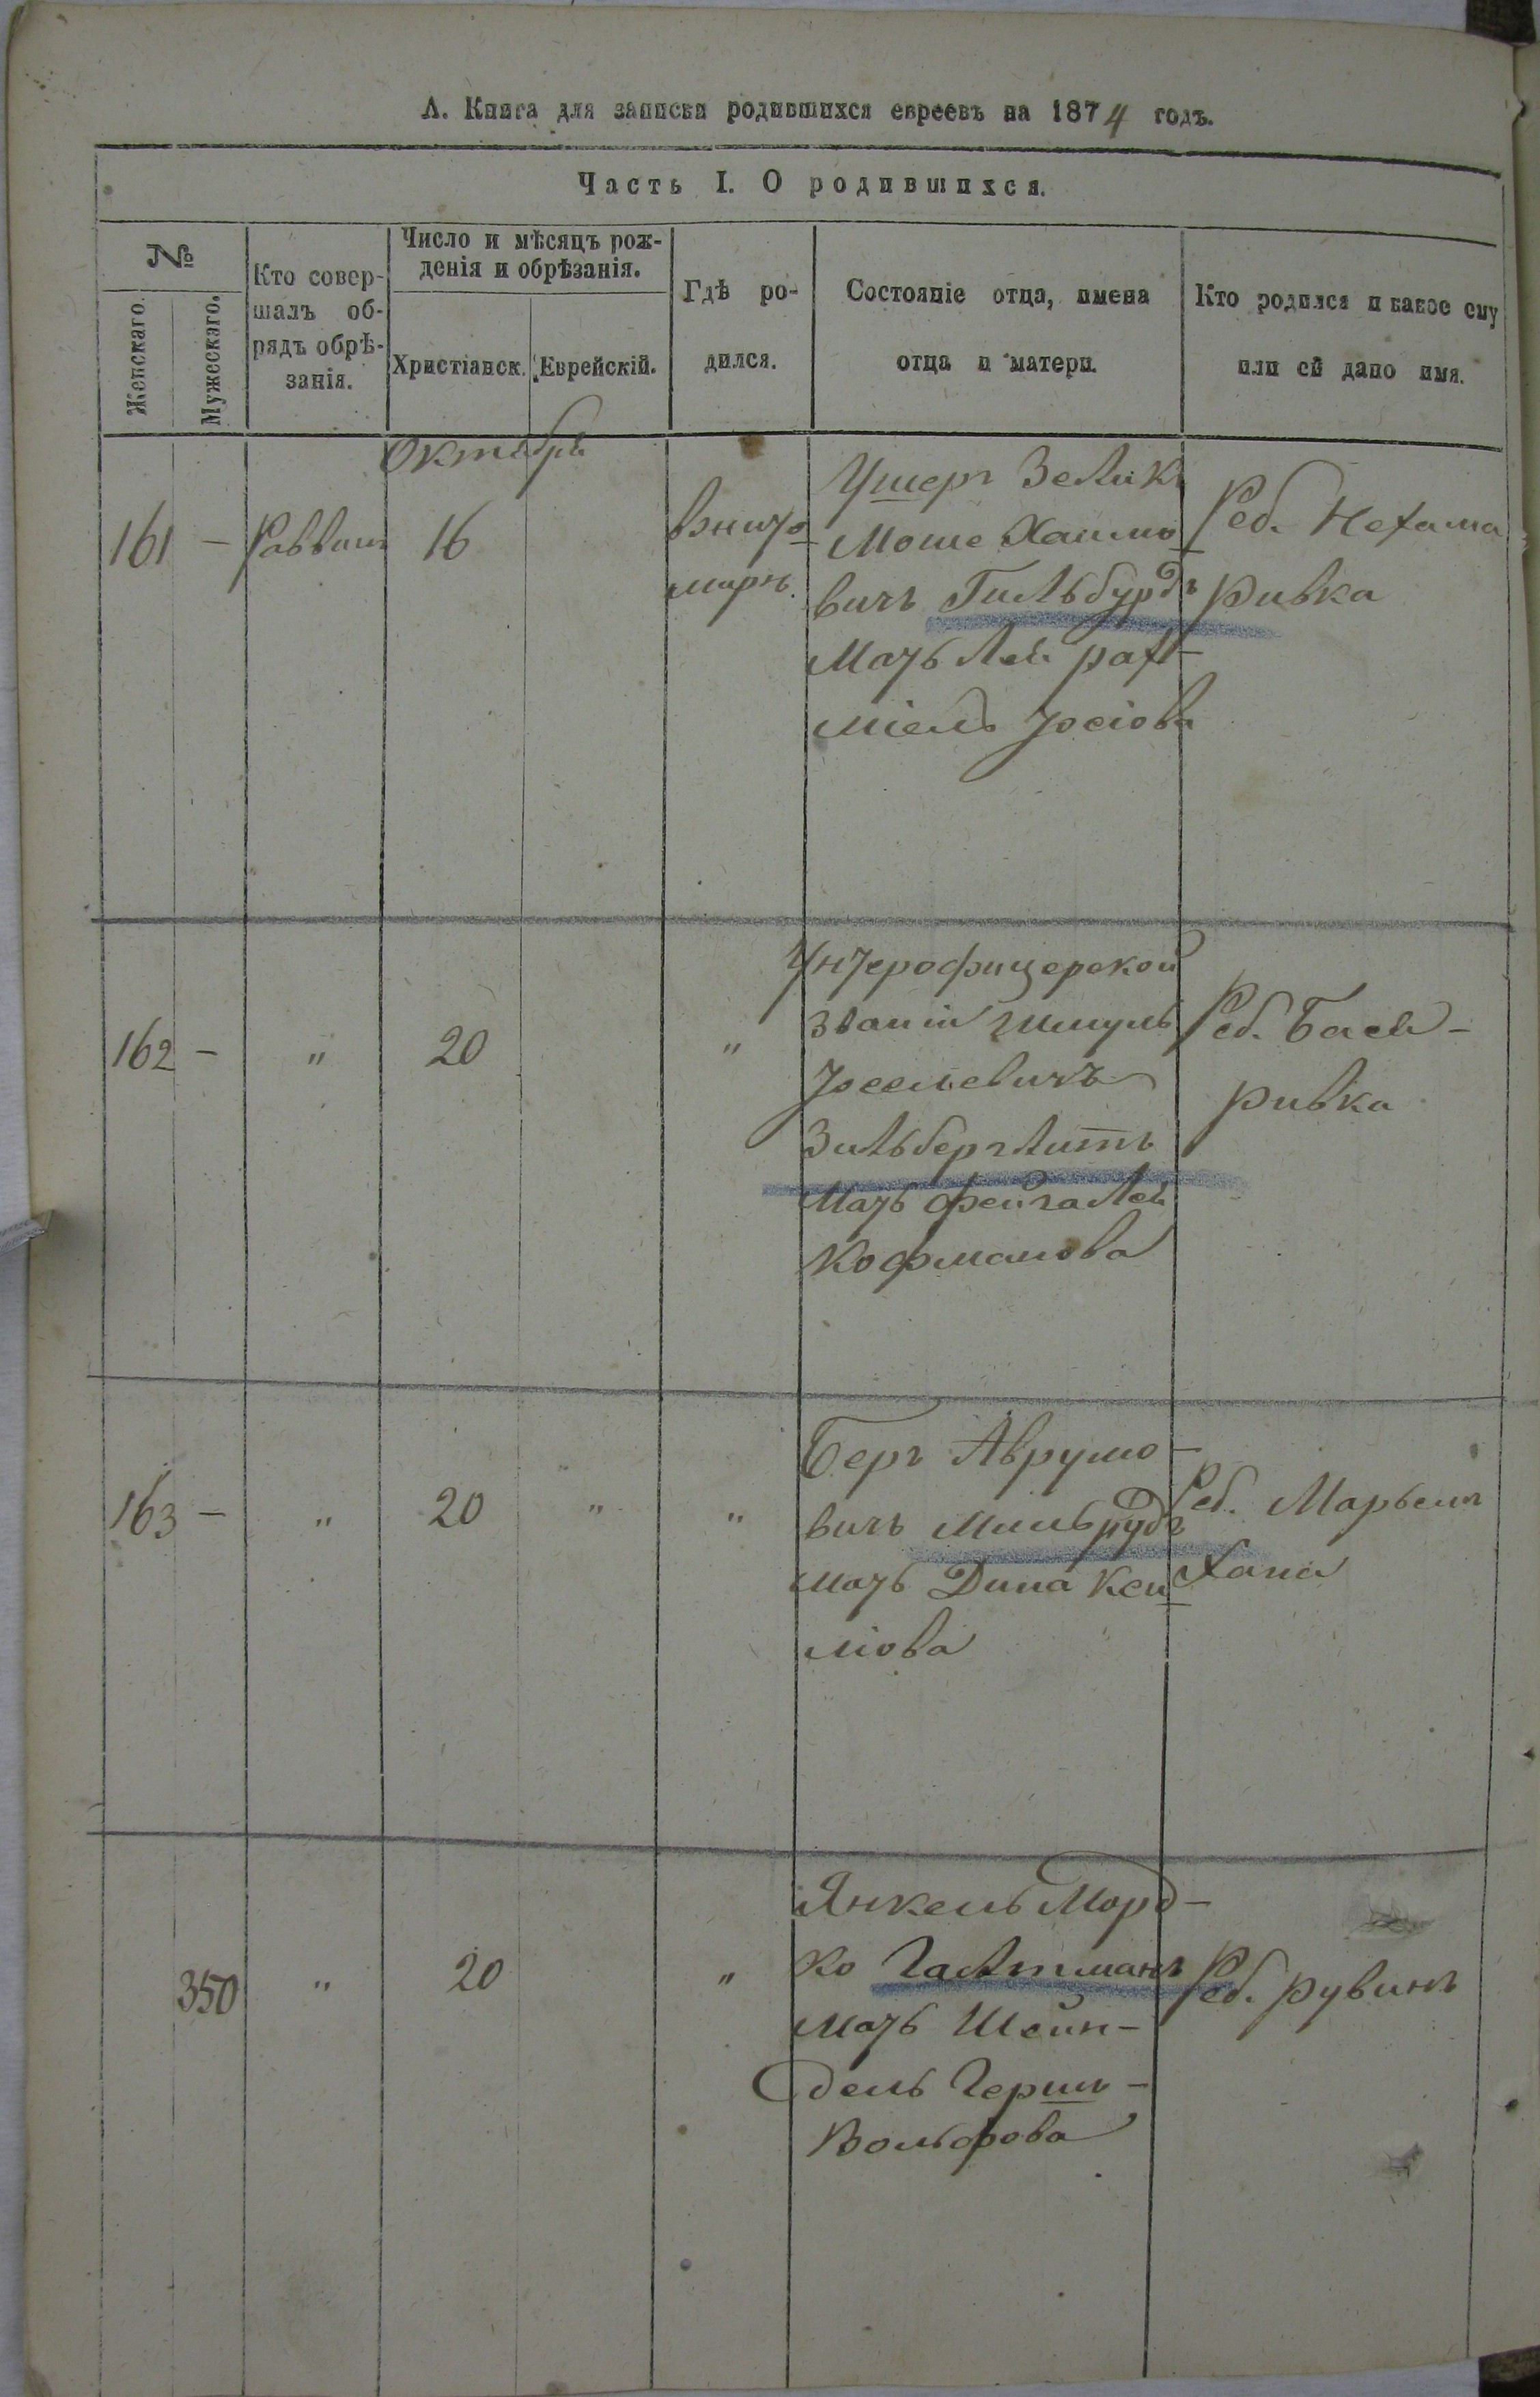 А. Книга для записки родившихся евреевъ на 1874 годъ.
Часть I. О родившихся.
№
Женскаго.
Мужескаго.
Кто совер-
шалъ об-
рядъ обрѣ-
занія.
Число и мѣсяцъ рож-
денія и обрѣзанія.
Христіанск.
Еврейскій.
Гдѣ ро-
дился.
Состояніе отца, имена
отца и матери.
Кто родился и какое ему
или ей дано имя.
Октября
161 — Раввинъ 16
Ушеръ Зеликъ
Моше Хаимо
вичъ Гильбурдъ
Мать Лея рах-
міель Іосіова
Реб. Нехама
Ривка
162 — " 20 "
Унтерофицерской
званія Шмуль
Іоселевичъ
Зильберглитъ
Мать Фейга Лея
Кофманова
Реб. Бася-
ривка
163 — " 20 " "
Берг Аврумо-
вичъ
мать Дина Кел
міова
Реб. Марьем
Хана
350 " 20 "
Янкель Морд-
ко Галтманъ
мать Шейн-
дель Герш-
Вольфова
Реб. рувинъ